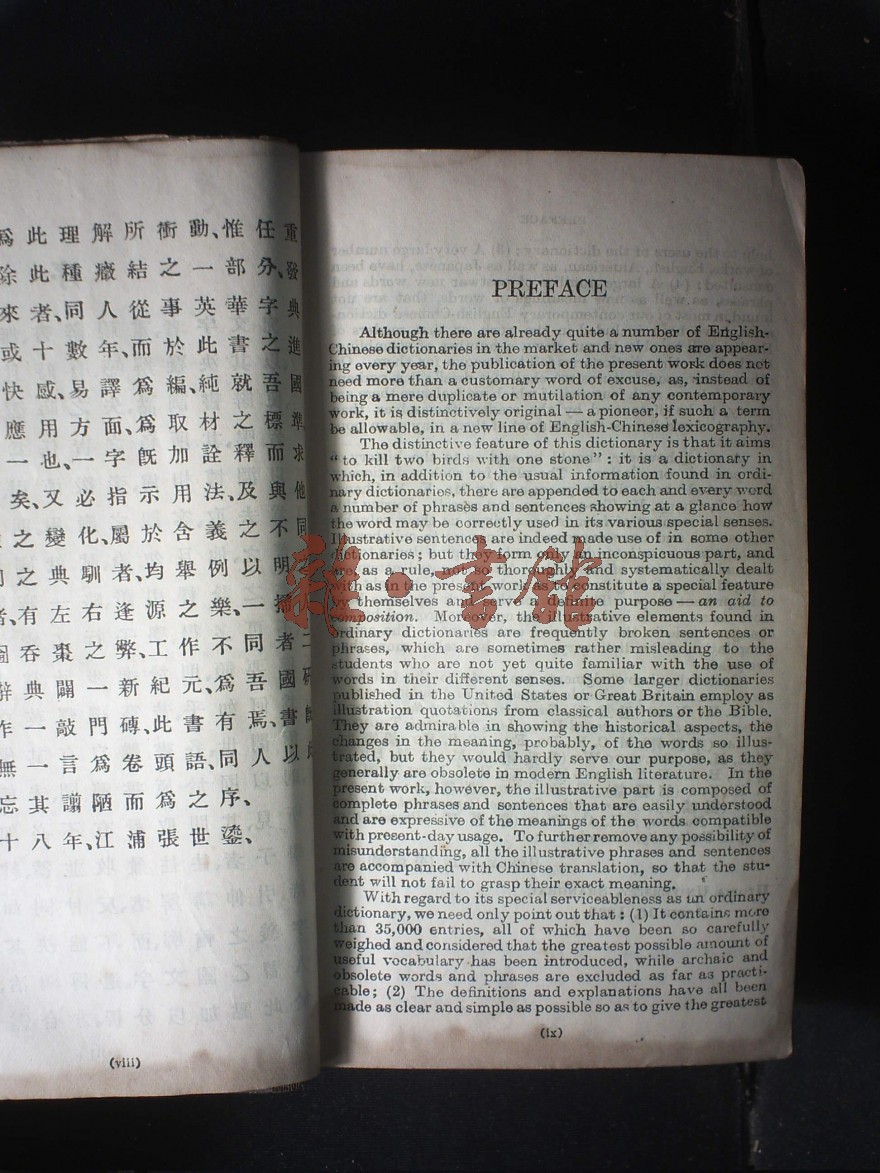 爲此理解所衝動、惟任重
除此種癥結之一部分、發
來者、同人從事英華字典
或十數年、而於此書之進
快感、易譯爲編、純就吾國
應用方面、爲取材之標準
一也、一字旣加詮釋而求
矣、又必指示用法、及與他
之變化、屬於含義之不同
之典馴者、均舉例以明
有左右逢源之樂、一
吞棗之弊、工作不同者二
辭典闢一新紀元、爲吾國
作一敲門磚、此書有焉、書
無一言爲卷頭語、同人以
忘其譾陋而爲之序、
十八年、江浦張世鎏、
(viii)
PREFACE
Although there are already quite a number of English-
Chinese dictionaries in the market and new ones are appear-
ing every year, the publication of the present work does not
need more than a customary word of excuse, as, instead of
being a mere duplicate or mutilation of any contemporary
work, it is distinctively original — a pioneer, if such a term
be allowable, in a new line of English-Chinese lexicography.
The distinctive feature of this dictionary is that it aims
"to kill two birds with one stone": it is a dictionary in
which, in addition to the usual information found in ordi-
nary dictionaries, there are appended to each and every word
a number of phrases and sentences showing at a glance how
the word may be correctly used in its various special senses.
Illustrative sentences are indeed made use of in some other
dictionaries; but they form only an inconspicuous part, and
are, as a rule, not so thoroughly and systematically dealt
with as in the present work as to constitute a special feature
by themselves and serve a definite purpose — an aid to
composition. Moreover, the illustrative elements found in
ordinary dictionaries are frequently broken sentences or
phrases, which are sometimes rather misleading to the
students who are not yet quite familiar with the use of
words in their different senses. Some larger dictionaries
published in the United States or Great Britain employ as
illustration quotations from classical authors or the Bible.
They are admirable in showing the historical aspects, the
changes in the meaning, probably, of the words so illus-
trated, but they would hardly serve our purpose, as they
generally are obsolete in modern English literature. In the
present work, however, the illustrative part is composed of
complete phrases and sentences that are easily understood
and are expressive of the meanings of the words compatible
with present-day usage. To further remove any possibility of
misunderstanding, all the illustrative phrases and sentences
are accompanied with Chinese translation, so that the stu-
dent will not fail to grasp their exact meaning.
With regard to its special serviceableness as an ordinary
dictionary, we need only point out that: (1) It contains more
than 35,000 entries, all of which have been so carefully
weighed and considered that the greatest possible amount of
useful vocabulary has been introduced, while archaic and
obsolete words and phrases are excluded as far as practi-
cable; (2) The definitions and explanations have all been
made as clear and simple as possible so as to give the greatest
(ix)
雜·書館